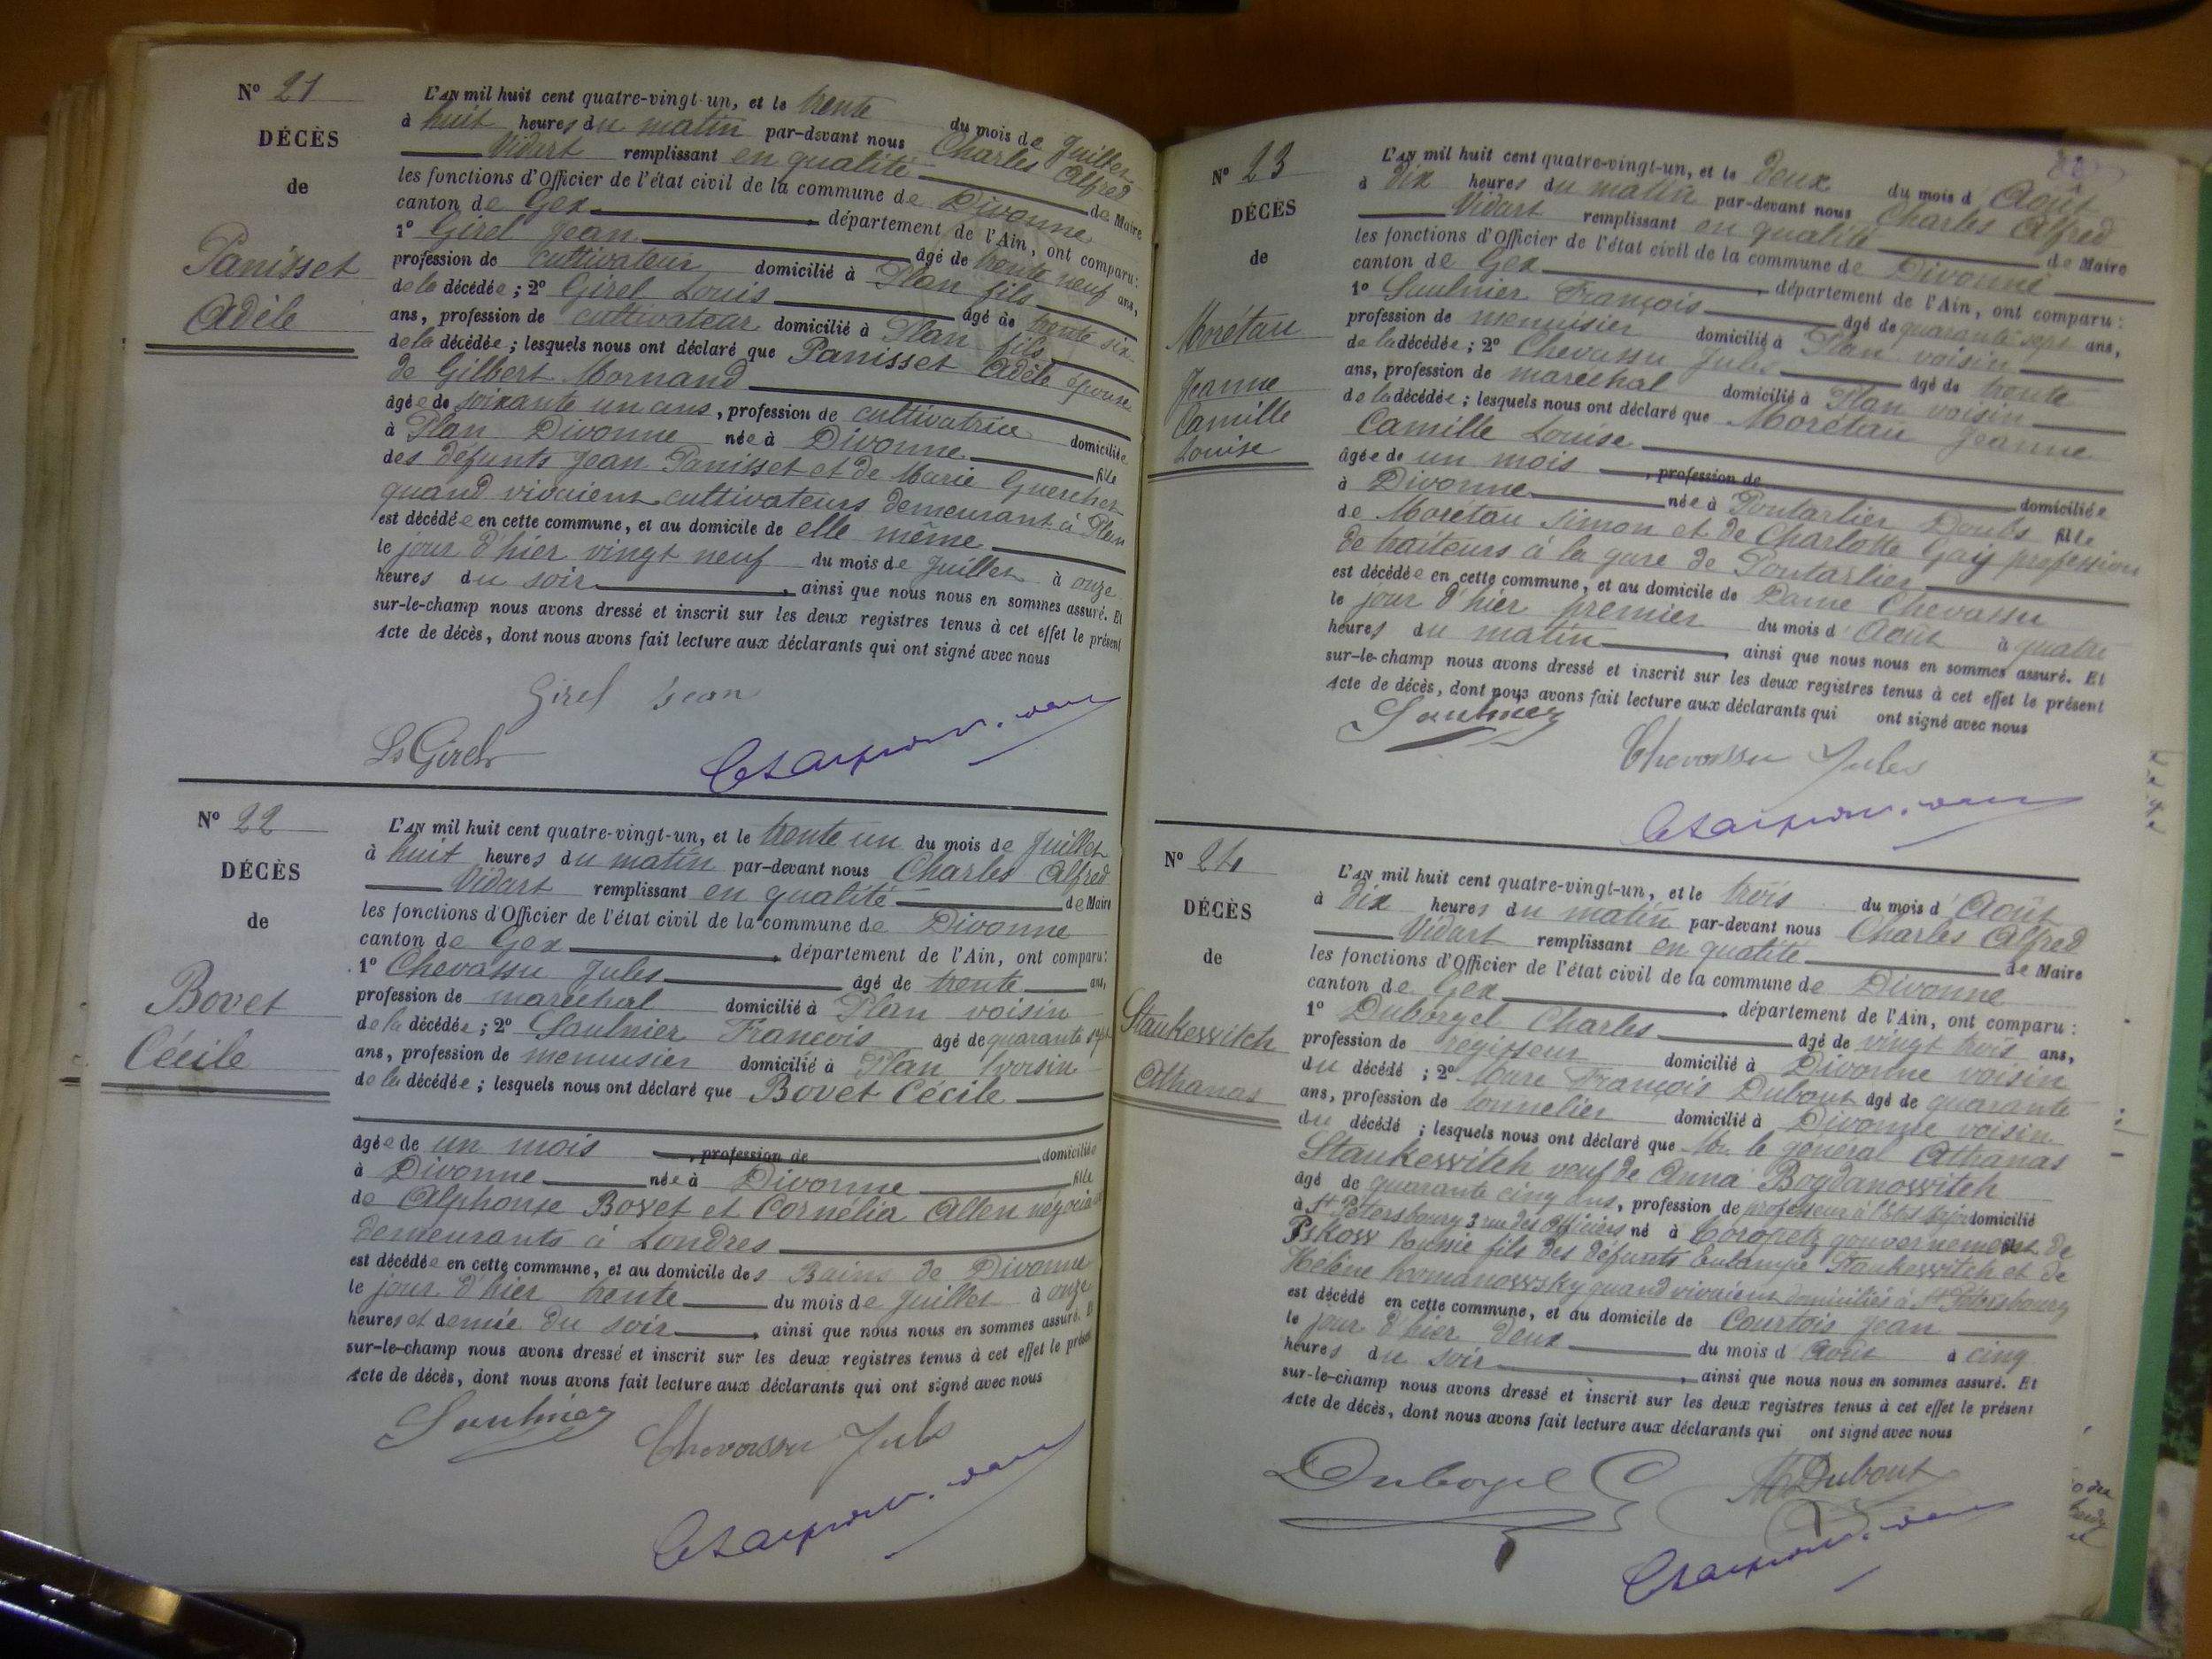 N° 21
DÉCÈS
de
Panisset
Adèle
L'AN mil huit cent quatre-vingt-un, et le trente du mois de Juillet
à huit heures du matin par-devant nous Charles Alfred
Vidart remplissant en qualité de Maire
les fonctions d'Officier de l'état civil de la commune de Divonne
canton de Gex département de l'Ain, ont comparu:
1° Girel Jean âgé de trente neuf ans,
profession de cultivateur domicilié à Plan fils
de la décédée; 2° Girel Louis âgé de trente six
ans, profession de cultivateur domicilié à Plan fils
de la décédée; lesquels nous ont déclaré que Panisset Adèle épouse
de Gilbert Mornand
âgée de soixante un ans, profession de cultivatrice domiciliée
à Plan Divonne née à Divonne fille
des défunts Jean Panisset et de Marie Guerchet
quand vivaient cultivateurs demeurant à Plan
est décédée en cette commune, et au domicile de elle même
le jour d'hier vingt neuf du mois de Juillet à onze
heures du soir, ainsi que nous nous en sommes assuré. Et
sur-le-champ nous avons dressé et inscrit sur les deux registres tenus à cet effet le présent
Acte de décès, dont nous avons fait lecture aux déclarants qui ont signé avec nous
Girel Jean
Ls Girel
N° 22
DÉCÈS
de
Bovet
Cécile
L'AN mil huit cent quatre-vingt-un, et le trente un du mois de Juillet
à huit heures du matin par-devant nous Charles Alfred
Vidart remplissant en qualité de Maire
les fonctions d'Officier de l'état civil de la commune de Divonne
canton de Gex département de l'Ain, ont comparu:
1° Chevassu Jules âgé de trente ans,
profession de maréchal domicilié à Plan voisin
de la décédée; 2° Saulnier François âgé de quarante sept
ans, profession de menuisier domicilié à Plan voisin
de la décédée; lesquels nous ont déclaré que Bovet Cécile
âgée de un mois, profession de domiciliée
à Divonne née à Divonne fille
de Alphonse Bovet et Cornélia Allen
demeurants à Londres
est décédée en cette commune, et au domicile des Bains de Divonne
le jour d'hier trente du mois de Juillet à onze
heures et demie du soir, ainsi que nous nous en sommes assuré. Et
sur-le-champ nous avons dressé et inscrit sur les deux registres tenus à cet effet le présent
Acte de décès, dont nous avons fait lecture aux déclarants qui ont signé avec nous
Saulnier
Chevassu Jules
N° 23
DÉCÈS
de
Morétau
Jeanne
Camille
Louise
L'AN mil huit cent quatre-vingt-un, et le deux du mois d'Août
à dix heures du matin par-devant nous Charles Alfred
Vidart remplissant en qualité de Maire
les fonctions d'Officier de l'état civil de la commune de Divonne
canton de Gex, département de l'Ain, ont comparu:
1° Saulnier François âgé de quarante sept ans,
profession de menuisier domicilié à Plan voisin
de la décédée; 2° Chevassu Jules âgé de trente
ans, profession de maréchal domicilié à Plan voisin
de la décédée; lesquels nous ont déclaré que Morétau Jeanne
Camille Louise
âgée de un mois, profession de domiciliée
à Divonne née à Pontarlier Doubs fille
de Morétau Simon et de Charlotte Gay profession
de traiteurs à la gare de Pontarlier
est décédée en cette commune, et au domicile de Dame Chevassu
le jour d'hier premier du mois d'Août à quatre
heures du matin, ainsi que nous nous en sommes assuré. Et
sur-le-champ nous avons dressé et inscrit sur les deux registres tenus à cet effet le présent
Acte de décès, dont nous avons fait lecture aux déclarants qui ont signé avec nous
Saulnier
Chevassu Jules
N° 24
DÉCÈS
de
Staukewitch
Athanas
L'AN mil huit cent quatre-vingt-un, et le trois du mois d'Août
à dix heures du matin par-devant nous Charles Alfred
Vidart remplissant en qualité de Maire
les fonctions d'Officier de l'état civil de la commune de Divonne
canton de Gex, département de l'Ain, ont comparu:
1° Duborgel Charles âgé de vingt trois ans,
profession de régisseur domicilié à Divonne voisin
du décédé; 2° Marc François Dubout âgé de quarante
ans, profession de tonnelier domicilié à Divonne voisin
du décédé; lesquels nous ont déclaré que Mr. le général Athanas
Staukewitch veuf de Anna Bogdanowitch
âgé de quarante cinq ans, profession de professeur à l'état major domicilié
à St Pétersbourg 3 rue des Officiers né à Coropetz gouvernement de
Pskow Russie fils des défunts Staukewitch et de
Hélène Romanowsky quand vivaient domiciliés à St Pétersbourg
est décédé en cette commune, et au domicile de Courtois Jean
le jour d'hier deux du mois d'Août à cinq
heures du soir, ainsi que nous nous en sommes assuré. Et
sur-le-champ nous avons dressé et inscrit sur les deux registres tenus à cet effet le présent
Acte de décès, dont nous avons fait lecture aux déclarants qui ont signé avec nous
Duborgel C
M Dubout